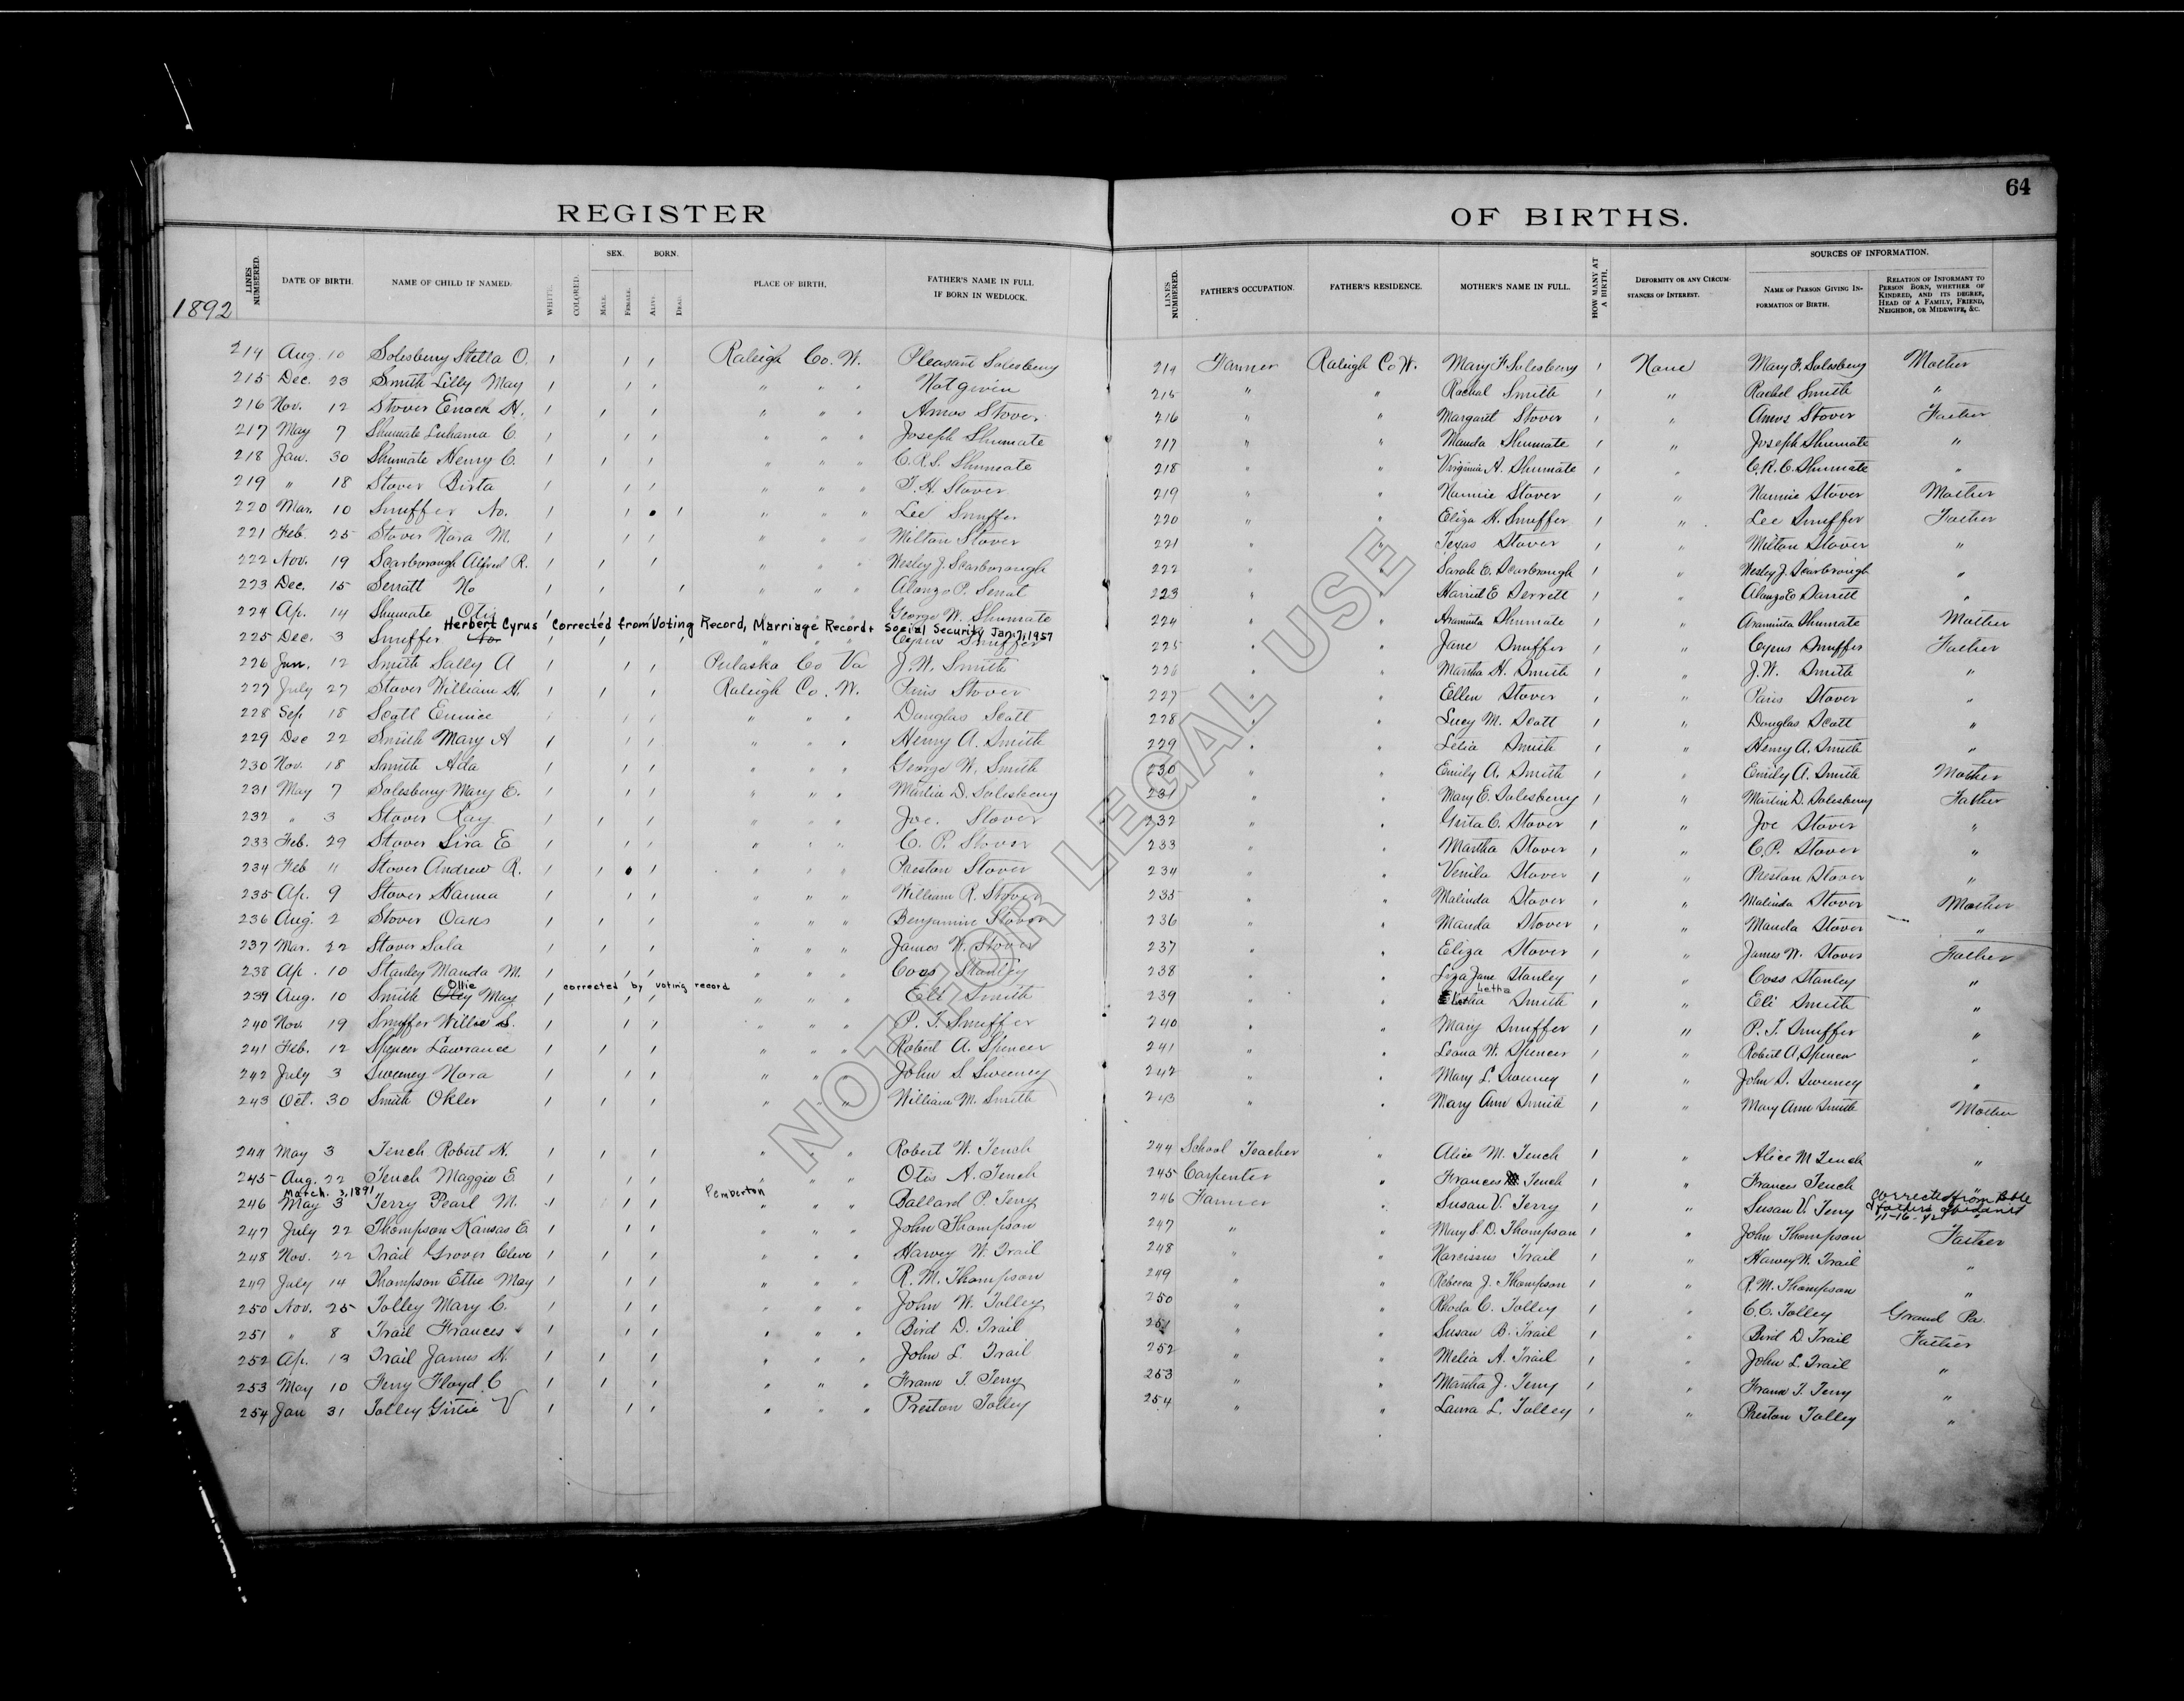 64
REGISTER OF BIRTHS.
1892
LINES NUMBERED. DATE OF BIRTH. NAME OF CHILD IF NAMED. WHITE. COLORED. SEX. MALE. FEMALE. BORN. ALIVE. DEAD. PLACE OF BIRTH. FATHER'S NAME IN FULL IF BORN IN WEDLOCK. LINES NUMBERED. FATHER'S OCCUPATION. FATHER'S RESIDENCE. MOTHER'S NAME IN FULL. HOW MANY AT A BIRTH. DEFORMITY OR ANY CIRCUMSTANCES OF INTEREST. SOURCES OF INFORMATION. NAME OF PERSON GIVING INFORMATION OF BIRTH. RELATION OF INFORMANT TO PERSON BORN, WHETHER OF KINDRED, AND ITS DEGREE, HEAD OF A FAMILY, FRIEND, NEIGHBOR, OR MIDWIFE, &C.
214 Aug. 10 Solesberry Stella O. Raleigh Co. W. Pleasant Solesberry 214 Farmer Raleigh Co W. Mary F. Solesberry 1 None Mary F. Solesberry Mother
215 Dec. 23 Smith Lilly May " " " Not given 215 " " Rachel Smith 1 " Rachel Smith "
216 Nov. 12 Stover Enoch H. " " " Amos Stover 216 " " Margaret Stover 1 " Amos Stover Father
217 May 7 Shumate Luhama C. " " " Joseph Shumate 217 " " Manda Shumate 1 " Joseph Shumate "
218 Jan. 30 Shumate Henry C. " " " C.R.S. Shumate 218 " " Virginia A. Shumate 1 " C.R.C. Shumate "
219 " 18 Stover Birta " " " T. H. Stover 219 " " Nannie Stover 1 " Nannie Stover Mother
220 Mar. 10 Snuffer No. " " " Lee Snuffer 220 " " Eliza H. Snuffer 1 " Lee Snuffer Father
221 Feb. 25 Stover Nora M. " " " Milton Stover 221 " " Texas Stover 1 " Milton Stover "
222 Nov. 19 Scarborough Alfred R. " " " Wesley J. Scarborough 222 " " Sarah E. Scarbrough 1 " Wesley J. Scarbrough "
223 Dec. 15 Serratt No " " " Alonzo P. 223 " " Harriet E Serrett 1 " Alonzo E "
224 Ap. 14 Shumate Otis " " " George W. Shumate 224 " " Araminta Shumate 1 " Araminta Shumate Mother
Herbert Cyrus Corrected from Voting Record, Marriage Record + Social Security Jan. 7, 1957
225 Dec. 3 Snuffer No. " " " Cyrus Snuffer 225 " " Jane Snuffer 1 " Cyrus Snuffer Father
226 Jan. 12 Smith Sally A Pulaska Co Va J. W. Smith 226 " " Martha H. Smith 1 " J.W. Smith "
227 July 27 Stover William H. Raleigh Co. W. Paris Stover 227 " " Ellen Stover 1 " Paris Stover "
228 Sep 18 Scott Eunice " " " Douglas Scott 228 " " Lucy M. Scott 1 " Douglas Scott "
229 Dec 22 Smith Mary A " " " Henry A. Smith 229 " " Letia Smith 1 " Henry A. Smith "
230 Nov. 18 Smith Ada " " " George W. Smith 230 " " Emily A. Smith 1 " Emily A. Smith Mother
231 May 7 Solesberry Mary E. " " " Martin D. Solesberry 231 " " Mary E. Solesberry 1 " Martin D. Solesberry Father
232 " 3 Stover Ray " " " Joe. Stover 232 " " C. Stover 1 " Joe Stover "
233 Feb. 29 Stover Sira E " " " C. P. Stover 233 " " Martha Stover 1 " C.P. Stover "
234 Feb 11 Stover Andrew R. " " " Preston Stover 234 " " Venila Stover 1 " Preston Stover "
235 Ap. 9 Stover Hanna " " " William R. Stover 235 " " Malinda Stover 1 " Malinda Stover Mother
236 Aug. 2 Stover Oaks " " " Benjamin Stover 236 " " Manda Stover 1 " Manda Stover "
237 Mar. 22 Stover Sala " " " James W. Stover 237 " " Eliza Stover 1 " James W. Stover Father
238 Ap. 10 Stanley Manda M. " " " Coss Stanley 238 " " Liza Jane Stanley 1 " Coss Stanley "
Ollie corrected by voting record Letha
239 Aug. 10 Smith Oley May " " " Eli Smith 239 " " Smith 1 " Eli Smith "
240 Nov. 19 Snuffer Willie S. " " " P. T. Snuffer 240 " " Mary Snuffer 1 " P. T. Snuffer "
241 Feb. 12 Spencer Lawrance " " " Robert A. Spencer 241 " " Leona W. Spencer 1 " Robert A. Spencer "
242 July 3 Sweeney Nora " " " John S. Sweeney 242 " " Mary L. Sweeney 1 " John S. Sweeney "
243 Oct. 30 Smith Okler " " " William M. Smith 243 " " Mary Ann Smith 1 " Mary Ann Smith Mother
244 May 3 Tench Robert H. " " " Robert W. Tench 244 School Teacher " Alice M. Tench 1 " Alice M Tench "
245 Aug. 22 Tench Maggie E. " " " Otis A. Tench 245 Carpenter " Frances Tench 1 " Frances Tench "
March. 3, 1891 Pemberton Corrected from Bible & Fathers affidavit 11-16-42
246 May 3 Terry Pearl M. " " " Ballard P. Terry 246 Farmer " Susan V. Terry 1 " Susan V. Terry
247 July 22 Thompson Kansas E. " " " John Thompson 247 " " Mary S. D. Thompson 1 " John Thompson Father
248 Nov. 22 Trail Grover Cleve " " " Harvey W. Trail 248 " " Narcissus Trail 1 " Harvey W. Trail "
249 July 14 Thompson Ettie May " " " R. M. Thompson 249 " " Rebecca J. Thompson 1 " R. M. Thompson "
250 Nov. 25 Tolley Mary C. " " " John W. Tolley 250 " " Rhoda C. Tolley 1 " C.C. Tolley Grand Pa.
251 " 8 Trail Frances " " " Bird D. Trail 251 " " Susan B. Trail 1 " Bird D. Trail Father
252 Ap. 13 Trail James H. " " " John L. Trail 252 " " Melia A. Trail 1 " John L. Trail "
253 May 10 Terry Floyd C " " " T. Terry 253 " " Martha J. Terry 1 " T. Terry "
254 Jan 31 Tolley Girtie V " " " Preston Tolley 254 " " Laura L. Tolley 1 " Preston Tolley "
NOT FOR LEGAL USE